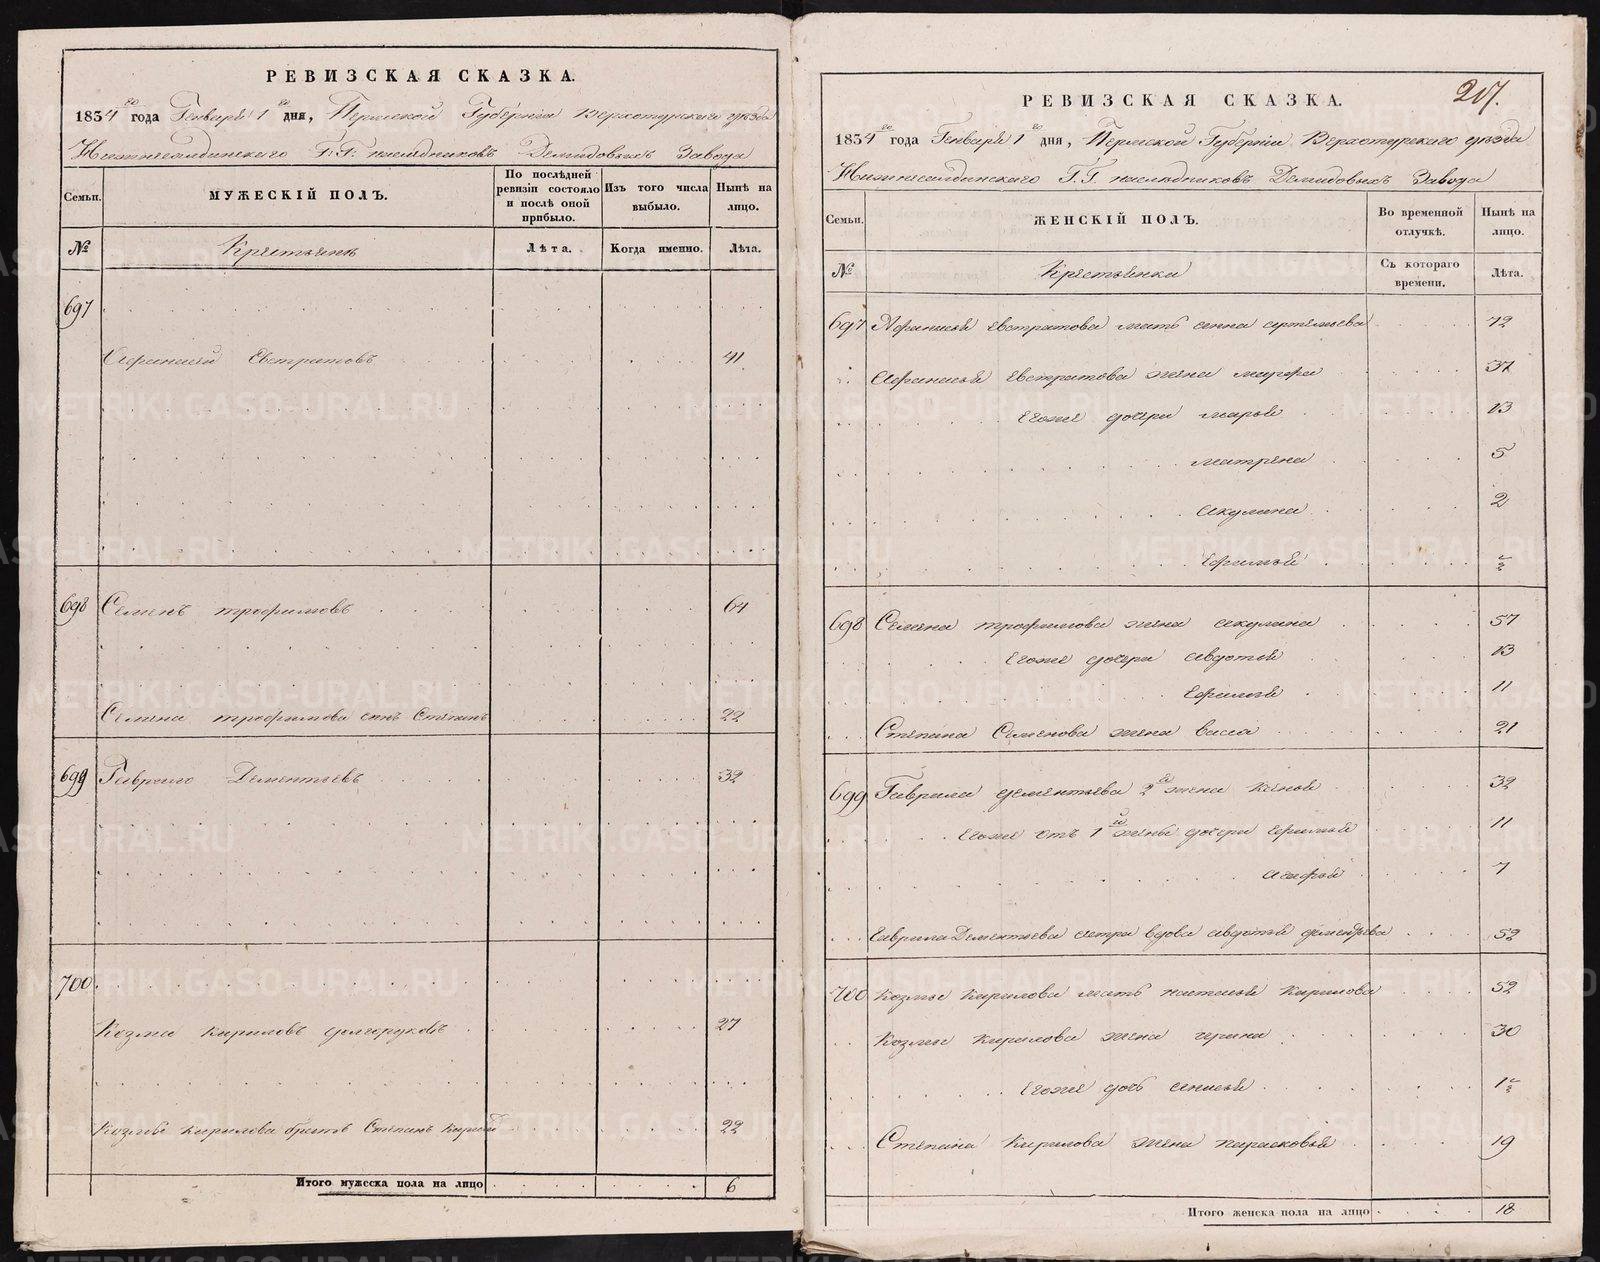 РЕВИЗСКАЯ СКАЗКА.
1834го года Генваря 1го дня, Пермской Губернiи Верхотурскаго уѣзда
Нижнесалдинскаго Г.Г. наслѣдниковъ Демидовыхъ Завода
Семьи.
МУЖЕСКІЙ ПОЛЪ.
По послѣдней ревизіи состояло и послѣ оной прибыло.
Изъ того числа выбыло.
Нынѣ на лицо.
№
Крестьянъ
Лѣта.
Когда именно.
Лѣта.
697
Афанасей Евстратовъ 41
698 Семенъ трофимовъ 64
Семена трофимова сынъ Степанъ 22
699 Гаврило Дементьевъ 32
700
Козма Кириловъ долгоруковъ 27
Козмы Кирилова братъ Степанъ 22
Итого мужеска пола на лицо 6
217.
РЕВИЗСКАЯ СКАЗКА.
1834го года Генваря 1го дня, Пермской Губерніи Верхотурскаго уѣзда
Нижнесалдинскаго Г.Г. наслѣдниковъ Демидовыхъ Завода
Семьи.
ЖЕНСКІЙ ПОЛЪ.
Во временной отлучкѣ.
Нынѣ на лицо.
№
Крестьянки
Съ котораго времени.
Лѣта.
697 Афанасья Евстратова мать анна артемьева 72
Афанасья Евстратова жена марфа 37
Егоже дочери марья 13
матрена 5
акулина 2
Ефимья
698 Семена трофимова жена акулина 57
Егоже дочери авдотья 13
Ефимья 11
Степана Семенова жена васса 21
699 Гаврила дементьева 2я жена 32
Егоже отъ 1й жены дочери Ефимья 11
агафья 7
Гаврила Дементьева сестра вдова авдотья дементьева 52
700 Козмы Кирилова мать наталья Кирилова 52
Козмы Кирилова жена ирина 30
Егоже дочь анисья
Степана Кирилова жена парасковья 19
Итого женска пола на лицо 18
METRIKI.GASO-URAL.RU